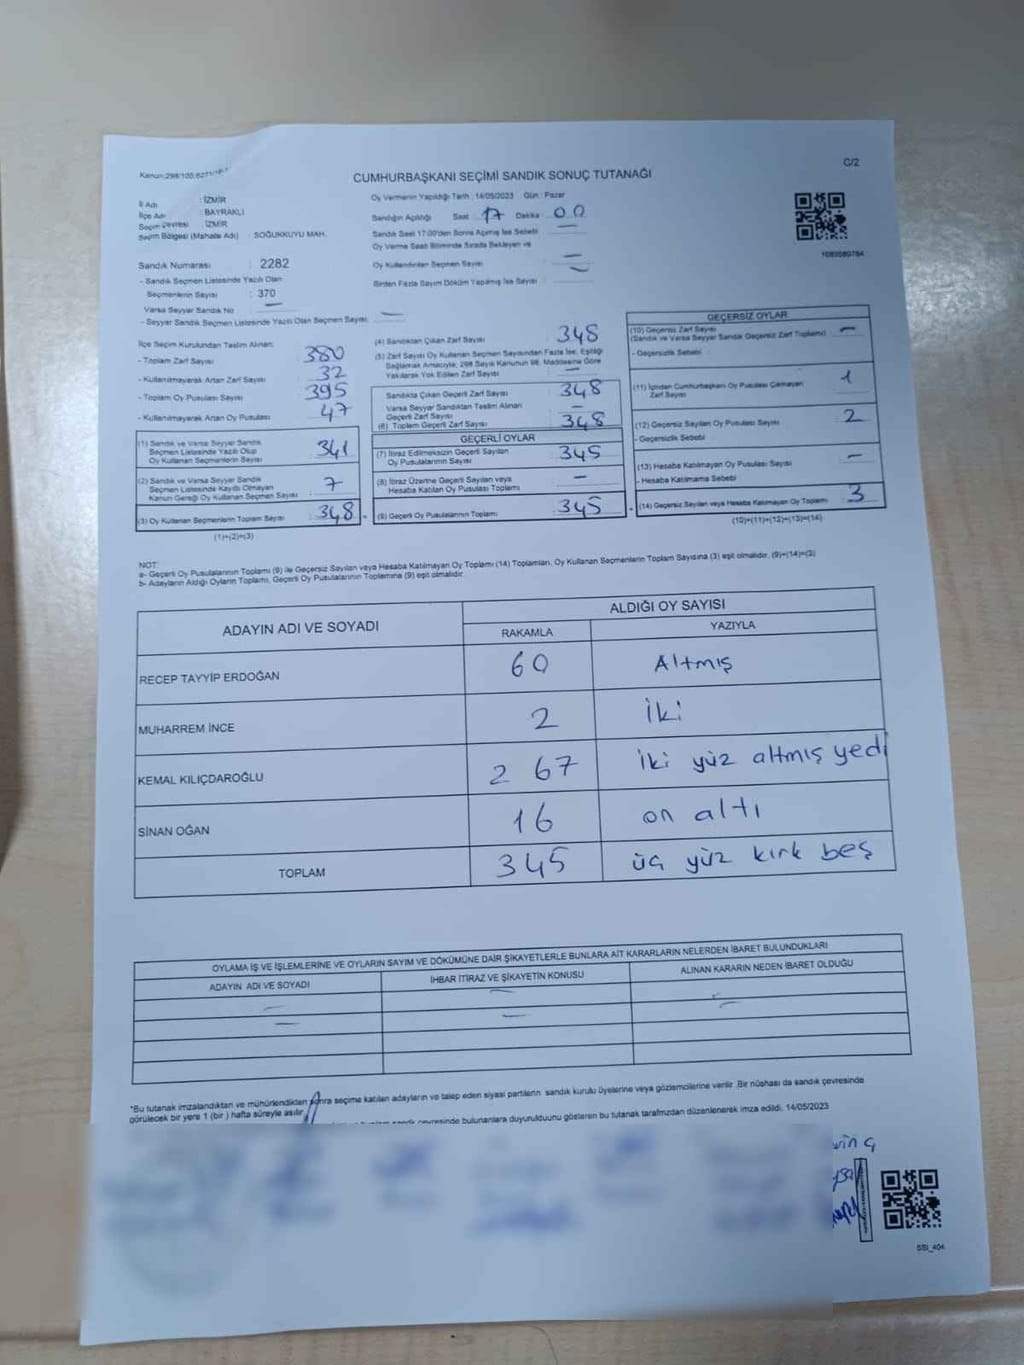 C/2
CUMHURBAŞKANI SEÇİMİ SANDIK SONUÇ TUTANAĞI
İl Adı : İZMİR
İlçe Adı : BAYRAKLI
Seçim Çevresi : İZMİR
Seçim Bölgesi (Mahalle Adı) : SOĞUKKUYU MAH.
Sandık Numarası : 2282
- Sandık Seçmen Listesinde Yazılı Olan
Seçmenlerin Sayısı : 370
Varsa Seyyar Sandık No —
- Seyyar Sandık Seçmen Listesinde Yazılı Olan Seçmen Sayısı —
Oy Vermenin Yapıldığı Tarih : 14/05/2023 Gün : Pazar
Sandığın Açıldığı Saat 17 Dakika 00
Sandık Saat 17:00'den Sonra Açılmış İse Sebebi —
Oy Verme Saati Bitiminde Sırada Bekleyen ve
Oy Kullandırılan Seçmen Sayısı —
Birden Fazla Sayım Döküm Yapılmış İse Sayısı —
İlçe Seçim Kurulundan Teslim Alınan:
- Toplam Zarf Sayısı 380
- Kullanılmayarak Artan Zarf Sayısı 32
- Toplam Oy Pusulası Sayısı 395
- Kullanılmayarak Artan Oy Pusulası 47
(1) Sandık ve Varsa Seyyar Sandık
Seçmen Listesinde Yazılı Olup
Oy Kullanan Seçmenlerin Sayısı 341
(2) Sandık ve Varsa Seyyar Sandık
Seçmen Listesinde Kayıtlı Olmayan
Kanun Gereği Oy Kullanan Seçmen Sayısı 7
(3) Oy Kullanan Seçmenlerin Toplam Sayısı 348 =
(1)+(2)=(3)
(4) Sandıktan Çıkan Zarf Sayısı 348
(5) Zarf Sayısı Oy Kullanan Seçmen Sayısından Fazla İse, Eşitliği
Sağlamak Amacıyla, 298 Sayılı Kanunun 98. Maddesine Göre
Yakılarak Yok Edilen Zarf Sayısı —
Sandıkta Çıkan Geçerli Zarf Sayısı 348
Varsa Seyyar Sandıktan Teslim Alınan
Geçerli Zarf Sayısı —
(6) Toplam Geçerli Zarf Sayısı 348
GEÇERLİ OYLAR
(7) İtiraz Edilmeksizin Geçerli Sayılan
Oy Pusulalarının Sayısı 345
(8) İtiraz Üzerine Geçerli Sayılan veya
Hesaba Katılan Oy Pusulası Toplamı —
(9) Geçerli Oy Pusulalarının Toplamı 345 +
GEÇERSİZ OYLAR
(10) Geçersiz Zarf Sayısı
(Sandık ve Varsa Seyyar Sandık Geçersiz Zarf Toplamı) —
- Geçersizlik Sebebi :
(11) İçinden Cumhurbaşkanı Oy Pusulası Çıkmayan
Zarf Sayısı 1
(12) Geçersiz Sayılan Oy Pusulası Sayısı 2
- Geçersizlik Sebebi
(13) Hesaba Katılmayan Oy Pusulası Sayısı —
- Hesaba Katılmama Sebebi
(14) Geçersiz Sayılan veya Hesaba Katılmayan Oy Toplamı 3
(10)+(11)+(12)+(13)=(14)
NOT:
a- Geçerli Oy Pusulalarının Toplamı (9) ile Geçersiz Sayılan veya Hesaba Katılmayan Oy Toplamı (14) Toplamları, Oy Kullanan Seçmenlerin Toplam Sayısına (3) eşit olmalıdır. (9)+(14)=(3)
b- Adayların Aldığı Oyların Toplamı, Geçerli Oy Pusulalarının Toplamına (9) eşit olmalıdır.
ADAYIN ADI VE SOYADI
ALDIĞI OY SAYISI
RAKAMLA YAZIYLA
RECEP TAYYİP ERDOĞAN 60 Altmış
MUHARREM İNCE 2 iki
KEMAL KILIÇDAROĞLU 267 iki yüz altmış yedi
SİNAN OĞAN 16 on altı
TOPLAM 345 üç yüz kırk beş
OYLAMA İŞ VE İŞLEMLERİNE VE OYLARIN SAYIM VE DÖKÜMÜNE DAİR ŞİKAYETLERLE BUNLARA AİT KARARLARIN NELERDEN İBARET BULUNDUKLARI
ADAYIN ADI VE SOYADI İHBAR İTİRAZ VE ŞİKAYETİN KONUSU ALINAN KARARIN NEDEN İBARET OLDUĞU
*Bu tutanak imzalandıktan ve mühürlendikten sonra seçime katılan adayların ve talep eden siyasi partilerin sandık kurulu üyelerine veya gözlemcilerine verilir. Bir nüshası da sandık çevresinde
görülecek bir yere 1 (bir) hafta süreyle asılır.
sandık çevresinde bulunanlara duyurulduunu gösteren bu tutanak tarafımızdan düzenlenerek imza edildi. 14/05/2023
SSI_404